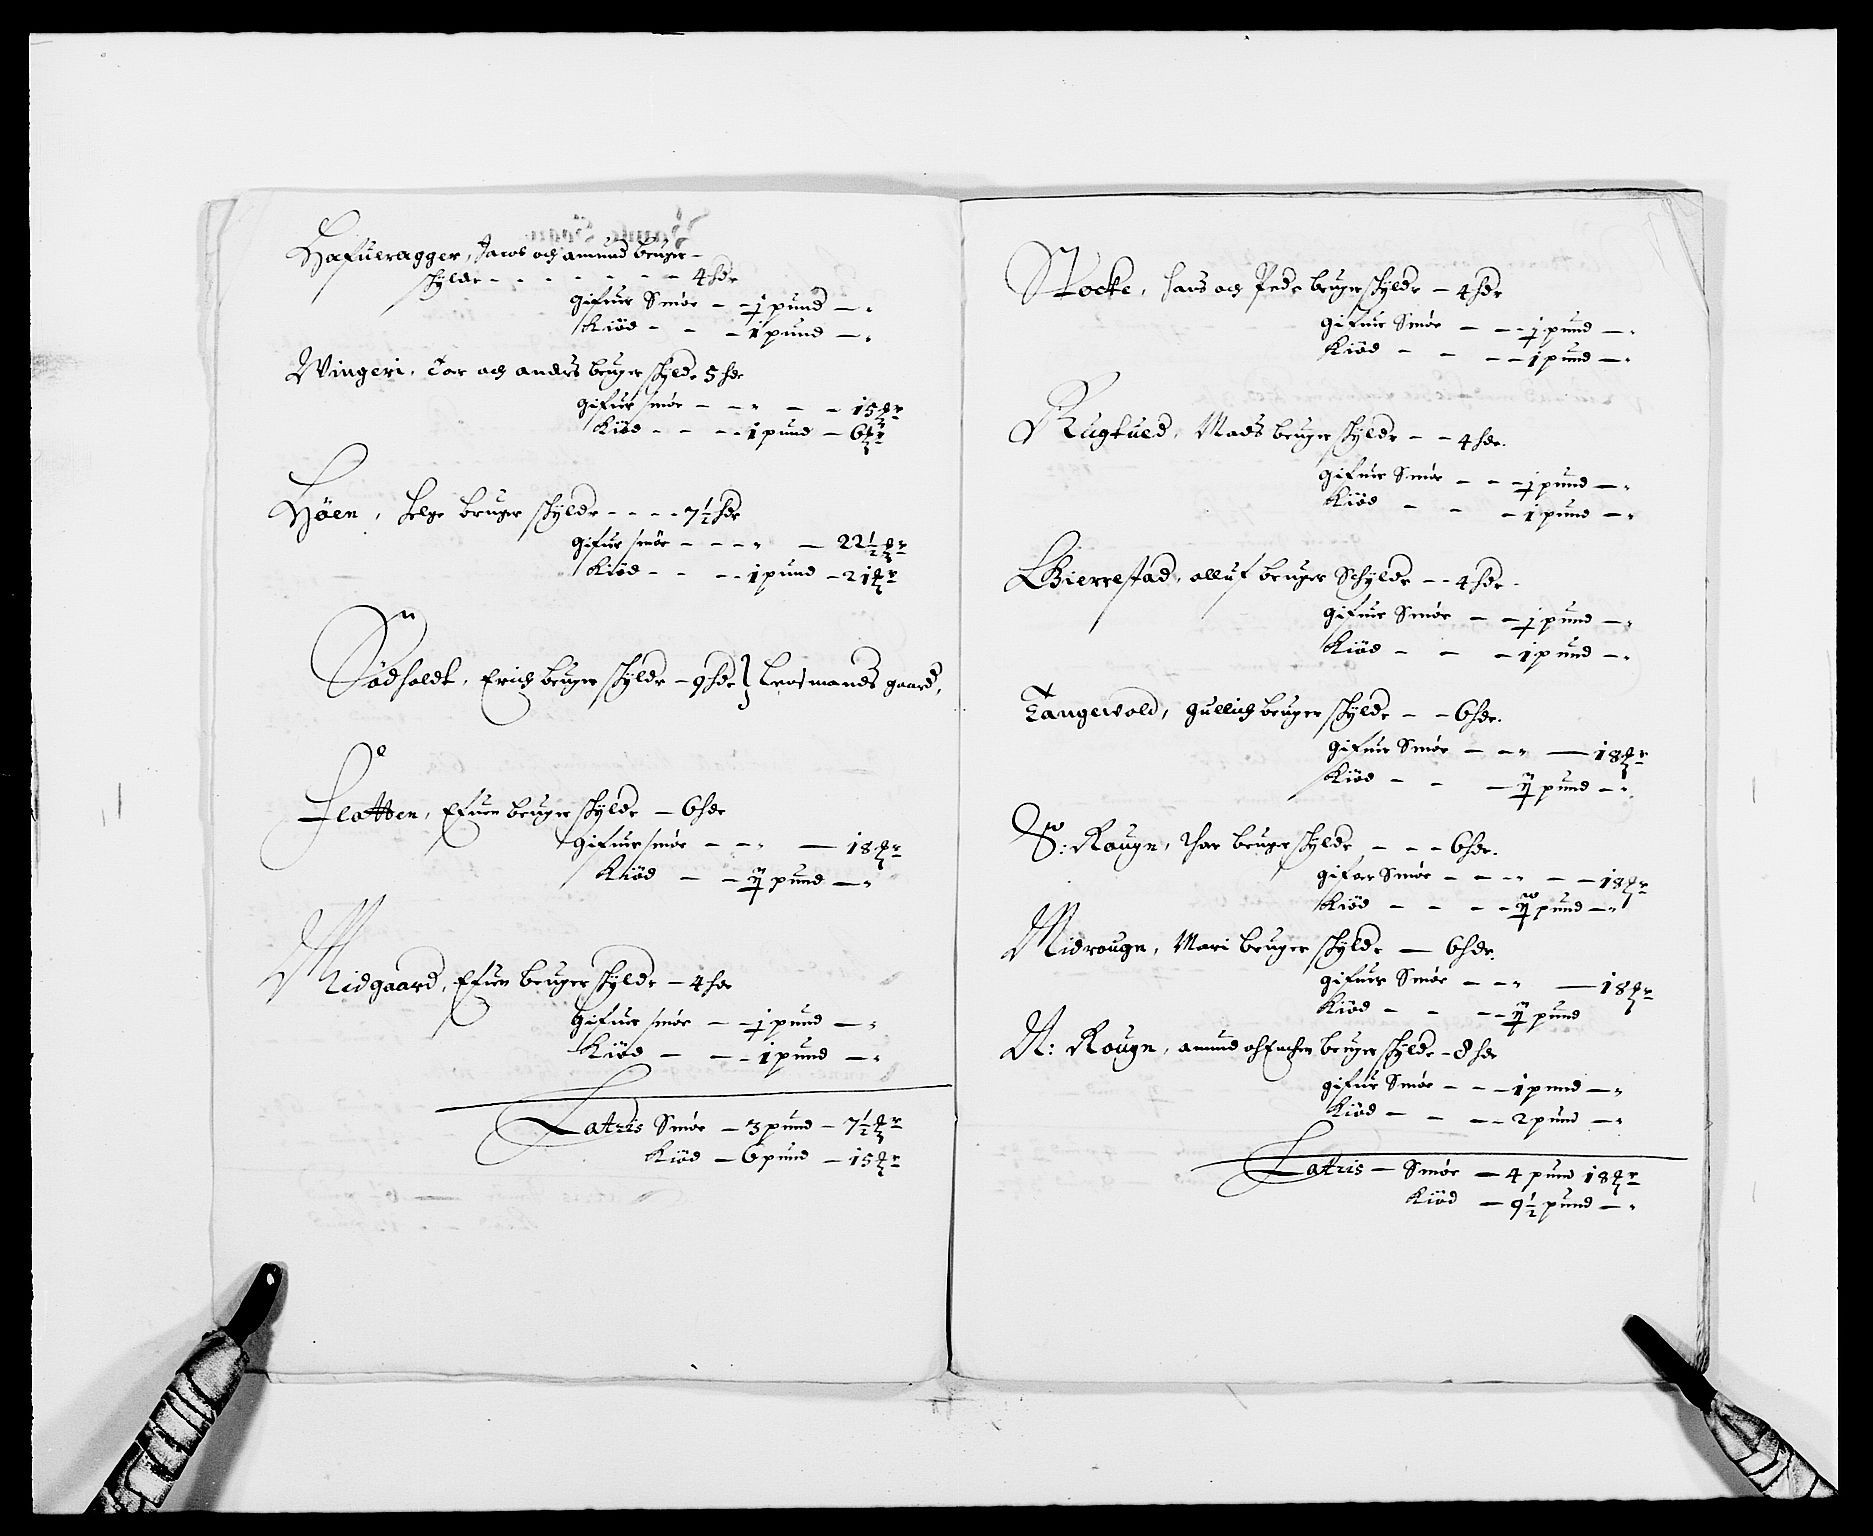 Hafueragger, Jacob och amund bruger –
skylde – – – – – – – 4 hdr
gifuer Smør – – ½ pund – "
Kiød – – – 1 pund – "
Wingeri, Tor och anders bruger skylde 5 hdr
gifuer smør – – " – – 15 ℔r
Kiød – – – – 1 pund – 6 ℔r
Høen, Helge bruger skylde – – – – 7½ hdr
gifuer smør – – – – " – 22½ ℔r
Kiød – – – – 1 pund – 21 ℔r
Sødholdt, Erich bruger skylde – 9 hdr } Lensmands gaard,
Flatten, Efuen bruger skylde – 6 hdr
gifuer smør – – " – 18 ℔r
Kiød – – ij pund – "
Midgaard, Efuen bruger skylde – 4 hdr
gifuer smør – – ½ pund – "
Kiød – – – 1 pund – "
Latris Smør – 3 pund – 7½ ℔r
Kiød – 6 pund – 15 ℔r
Stocke, Hans och Peder bruger skylde – 4 hdr
gifuer Smør – – – ½ pund – "
Kiød – – – – 1 pund – "
Rugtued, Mads bruger skylde – – 4 hdr.
gifuer Smør – – – ½ pund – "
Kiød – – – 1 pund – "
Bierrestad, olluf bruger Schylde – – 4 hdr –
gifuer Smør – – ½ pund – "
Kiød – – – 1 pund – "
Tangewold, gullich bruger skylde – – 6 hdr.
gifuer Smør – – – " – 18 ℔r
Kiød – – – ij pund – "
S: Rougn, Thor bruger skylde – – – 6 hdr.
gifuer Smør – – – " – – 18 ℔r
Kiød – – – – ij pund – "
Midrougn, Mari bruger skylde – 6 hdr.
gifuer Smør – – " – 18 ℔r
Kiød – – – – ij pund
N: Rougn, amund och bruger skylde – 8 hdr
gifuer Smør – – – 1 pund – "
Kiød – – – – 2 pund – "
Latris – Smør – 4 pund 18 ℔r
Kiød – 9½ pund – "